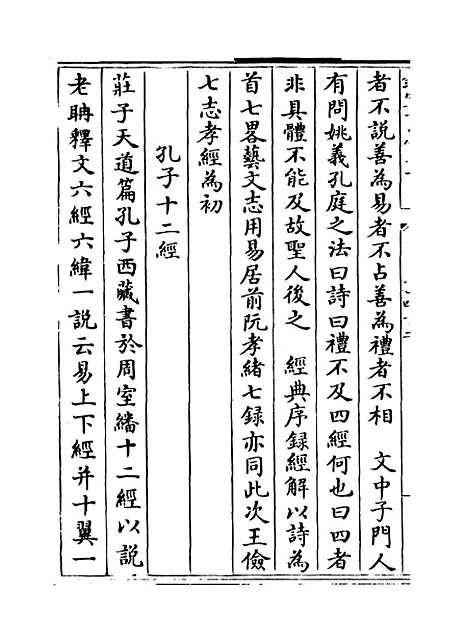 者不説善為易者不占善為禮者不相　文中子門人
有問姚義孔庭之法曰詩曰禮不及四經何也曰四者
非具體不能及故聖人後之　經典序録經解以詩為
首七畧藝文志用易居前阮孝緒七録亦同此次王儉
七志孝經為初
孔子十二經
莊子天道篇孔子西藏書於周室繙十二經以説
老聃釋文六經六緯一説云易上下經并十翼一